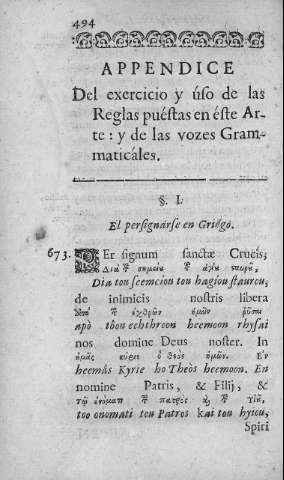 494
APPENDICE
Del exercicio y úso de las
Reglas puéstas en éste Ar-
te: y de las vozes Gram-
maticáles.
§. I.
El persignárse en Griégo.
673. PEr signum sanctæ Crucis;
Διὰ τȣ͂ σημείȣ τȣ͂ ἁγίȣ ςαυρȣ͂,
Dia tou seemeiou tou hagiou staurou,
de inimicis nostris libera
Ἀπὸ τῶν ἐχθρῶν ἡμῶν ῥῦσαι
apò tôon echthroon heemoon rhysai
nos domine Deus noster. In
ἡμᾶς κύριε ὁ θεὸς ἡμῶν. Ἐν
heemás Kyrie ho Theòs heemoon. En
nomine Patris, & Filij, &
τῷ ὀνόματι τȣ͂ πατρὸς ϗ τȣ͂ υἱȣ͂,
too onomati tou Patros kai tou hyiou,
Spiri